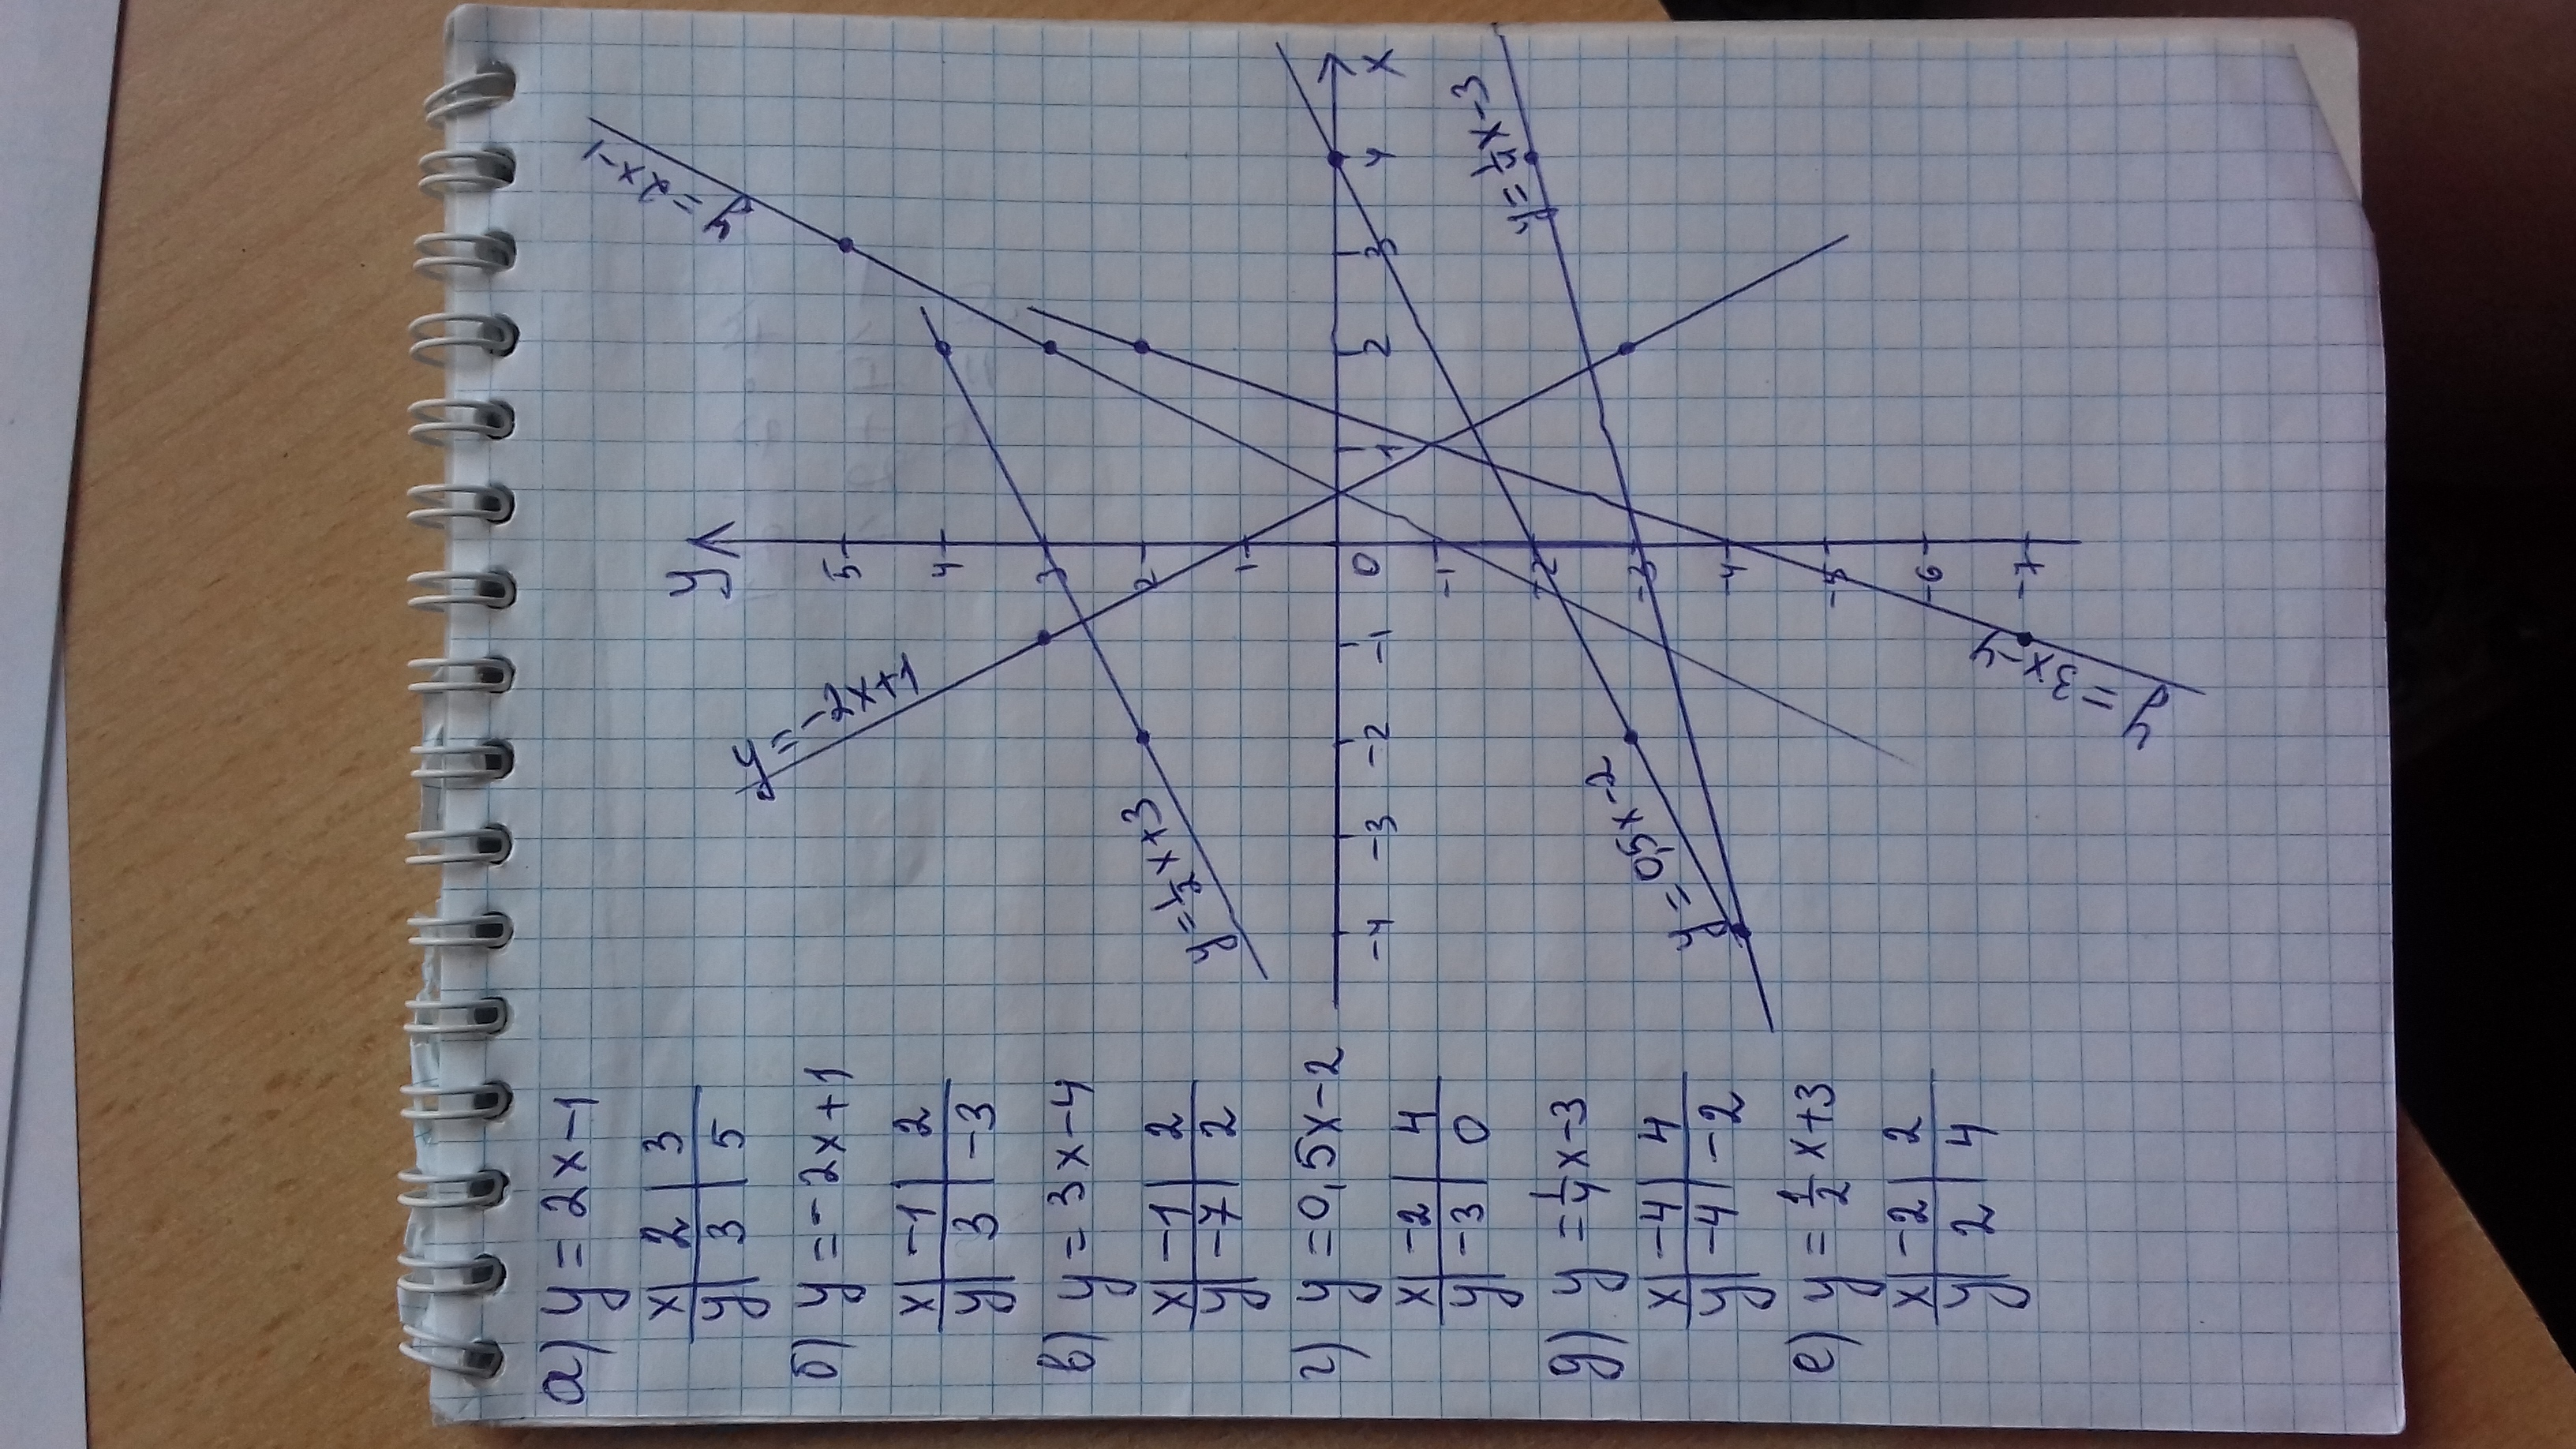 а) y = 2x-1
x | 2 | 3
y | 3 | 5
б) y = -2x+1
x | -1 | 2
y | 3 | -3
в) y = 3x-4
x | -1 | 2
y | -7 | 2
г) y = 0,5x-2
x | -2 | 4
y | -3 | 0
д) y = 1/4 x-3
x | -4 | 4
y | -4 | -2
е) y = 1/2 x+3
x | -2 | 2
y | 2 | 4
y
5
4
3
2
1
0
-1
-2
-3
-4
-5
-6
-7
-4 -3 -2 -1 1 2 3 4 x
y=2x-1
y=-2x+1
y=1/2 x+3
y=1/4 x-3
y=0,5x-2
y=3x-4